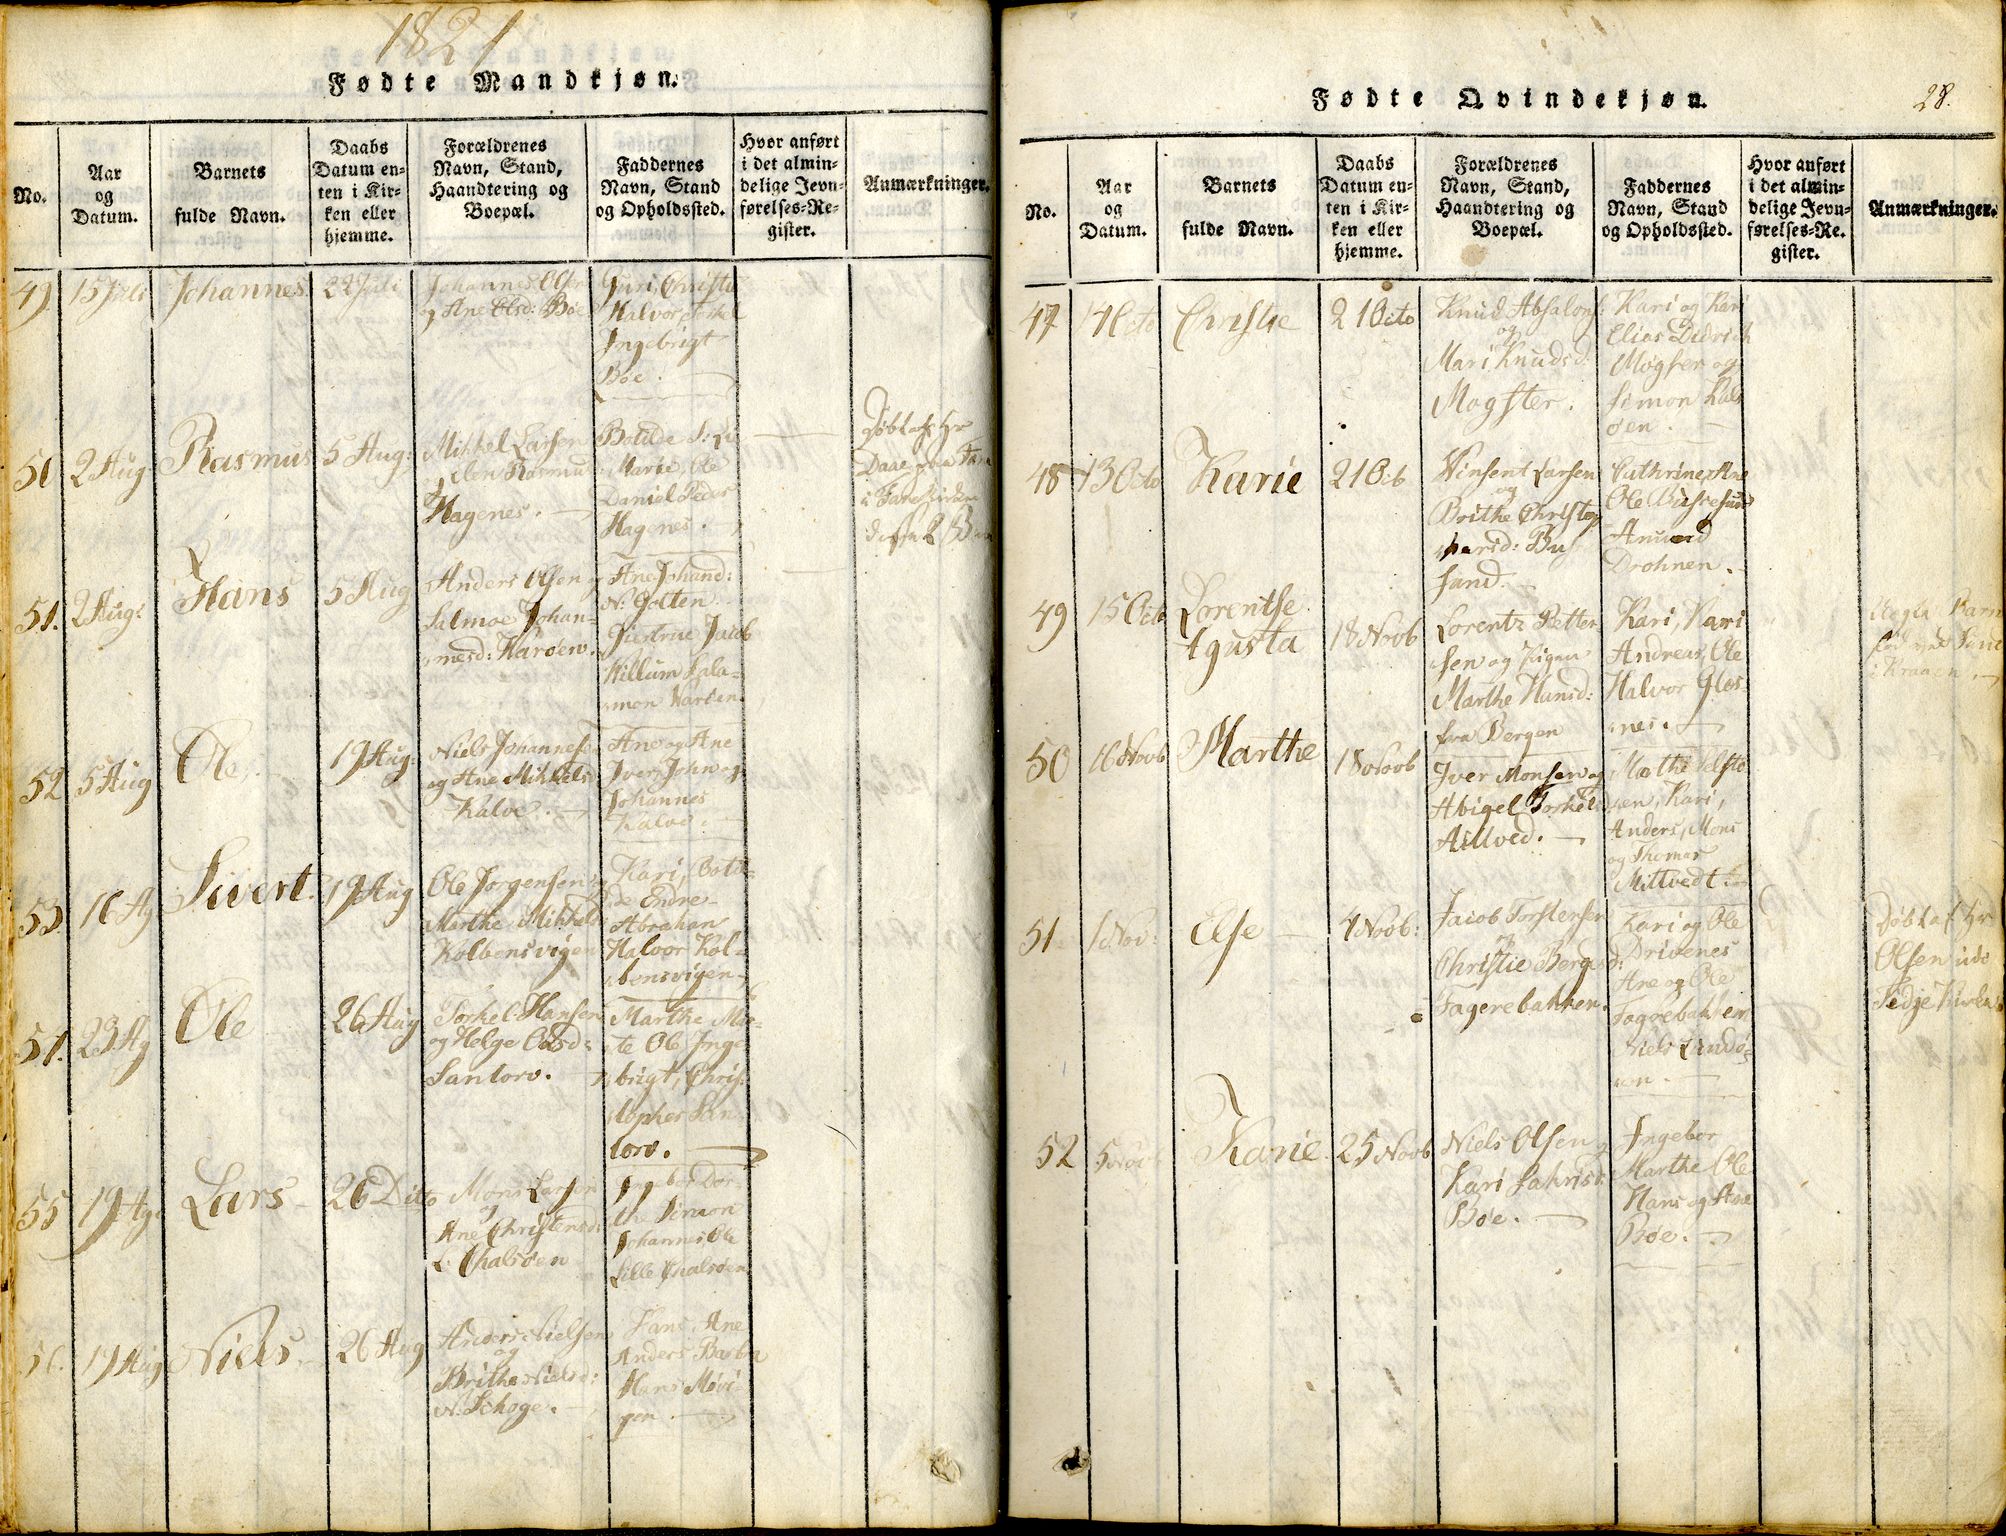 1821
Fødte Mandkjøn.
No.
Aar
og
Datum.
Barnets
fulde Navn.
Daabs
Datum en-
ten i Kir-
ken eller
hjemme.
Forældrenes
Navn, Stand,
Haandtering og
Boepæl.
Faddernes
Navn, Stand
og Opholdssted.
Hvor anført
i det almin-
delige Jevn-
førelses-Re-
gister.
Anmærkninger.
49. 15 Juli Johannes 22 Juli
Johannes Olsen
og Ane Olsd: Bøe
Guri, Christi
Halvor
Ingebrigt
Bøe.
50 2 Aug Rasmus 5 Aug:
Mikkel Larsen
Elen Rasmus
Hagenes.
Botilde
Marte, Ole
Daniel Peder
Hagenes.
Døbt af Hr
Daae
51. 2 Aug: Hans 5 Aug
Anders Olsen og
Salmoe Johan-
nesd: Karøen.
Ane Johand:
N: Golten
Giertrue Jacob
Willum Sala-
mon Karøen.
52 5 Aug Ole 19 Aug:
Niels Johannesen
og Ane Mikkels
Kalve.
Ane og Ane
Iver, John og
Johannes
Kalve.
53. 16 Ag Sivert. 19 Aug
Ole Jørgensen og
Marthe Mikkels
Kolbensvigen
Kari, Botil-
de Endre
Abraham
Halvor Kol-
bensvigen
54. 23 Ag Ole 26 Aug
Torkel Hansen
og Helge Olsd:
Santorv.
Marthe Mar-
te Ole Inge
brigt, Chris-
topher San
torv.
55 19 Ag: Lars 26 Ditto
Mons Larsen
og
Ane Christensd:
L: Chalsøen
Ingebor Dor-
th: Simon
Johannes Ole
Lille Chalsøen
56. 19 Aug Niels 26 Aug
Anders Nielsen
og
Brithe Nielsd:
N: Schoge.
Hans, Ane
Anders Barbra
Hans Møvi-
gen.
Fødte Qvindekjøn.
28.
No.
Aar
og
Datum.
Barnets
fulde Navn.
Daabs
Datum en-
ten i Kir-
ken eller
hjemme.
Forældrenes
Navn, Stand,
Haandtering og
Boepæl.
Faddernes
Navn, Stand
og Opholdssted.
Hvor anført
i det almin-
delige Jevn-
førelses-Re-
gister.
Anmærkninger.
47 14 Octo Christie 21 Octo
Knud Absalons:
og
Mari Knudsd
Magster.
Kari og Kari
Elias Didrich
Møgster og
Simon Kals
øen.
48 13 Octo Karie 21 Octb
Vinsent Larsen
og
Brithe Christop
harsd: Bus
sund.
Cathrine, Ane
Ole Bussesund
Amund
Drøhnen.
49 15 Octo Lorentse
Agusta 18 Novb
Lorentz Petter
sen og Pigen
Marthe Hansd:
fra Bergen
Kari, Kari
Andreas, Ole
Halvor Gløs-
nes.
Uegte Barn
50 16 Novb Marthe 18 Novb
Iver Monsen og
Abigel Torkels
Mitved.
Marthe Selstø
en, Kari,
Anders, Mons
og Thomas
Mittvedt
51 1 Nov: Else 4 Novb:
Jacob Torstensen
og
Christie Bergesd:
Fagerebakken.
Kari og Ole
Drivenes
Ane og Ole
Fagrebakken
Niels Lundø-
en.
Døbt af Hr
Olsen ude
Fedje Kirke
52 5 Novb Karie 25 Novb
Niels Olsen og
Kari Sahrisd:
Bøe.
Ingebor
Marthe Ole
Hans og Ane
Bøe.